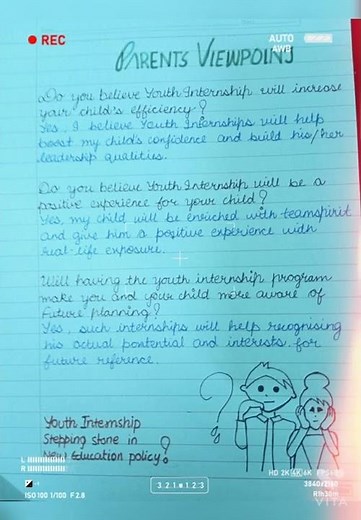 REC
AUTO
AWB
PARENTS VIEWPOINT
Do you believe Youth Internship will increase
your child's efficiency?
Yes, I believe Youth Internships will help
boost my child's confidence and build his/her
leadership qualities.
Do you believe Youth Internship will be a
positive experience for your child?
Yes, my child will be enriched with teamspirit
and give him a positive experience with
real-life exposure.
Will having the youth internship program
make you and your child more aware of
future planning?
Yes, such internships will help recognising
his actual pontential and interests for
future reference.
Youth Internship
Stepping stone in
New Education policy?
L
R
ISO100 1/100 F2.8
3.2.1.1.2.3
HD 2K 4K 6K
3840
VITA